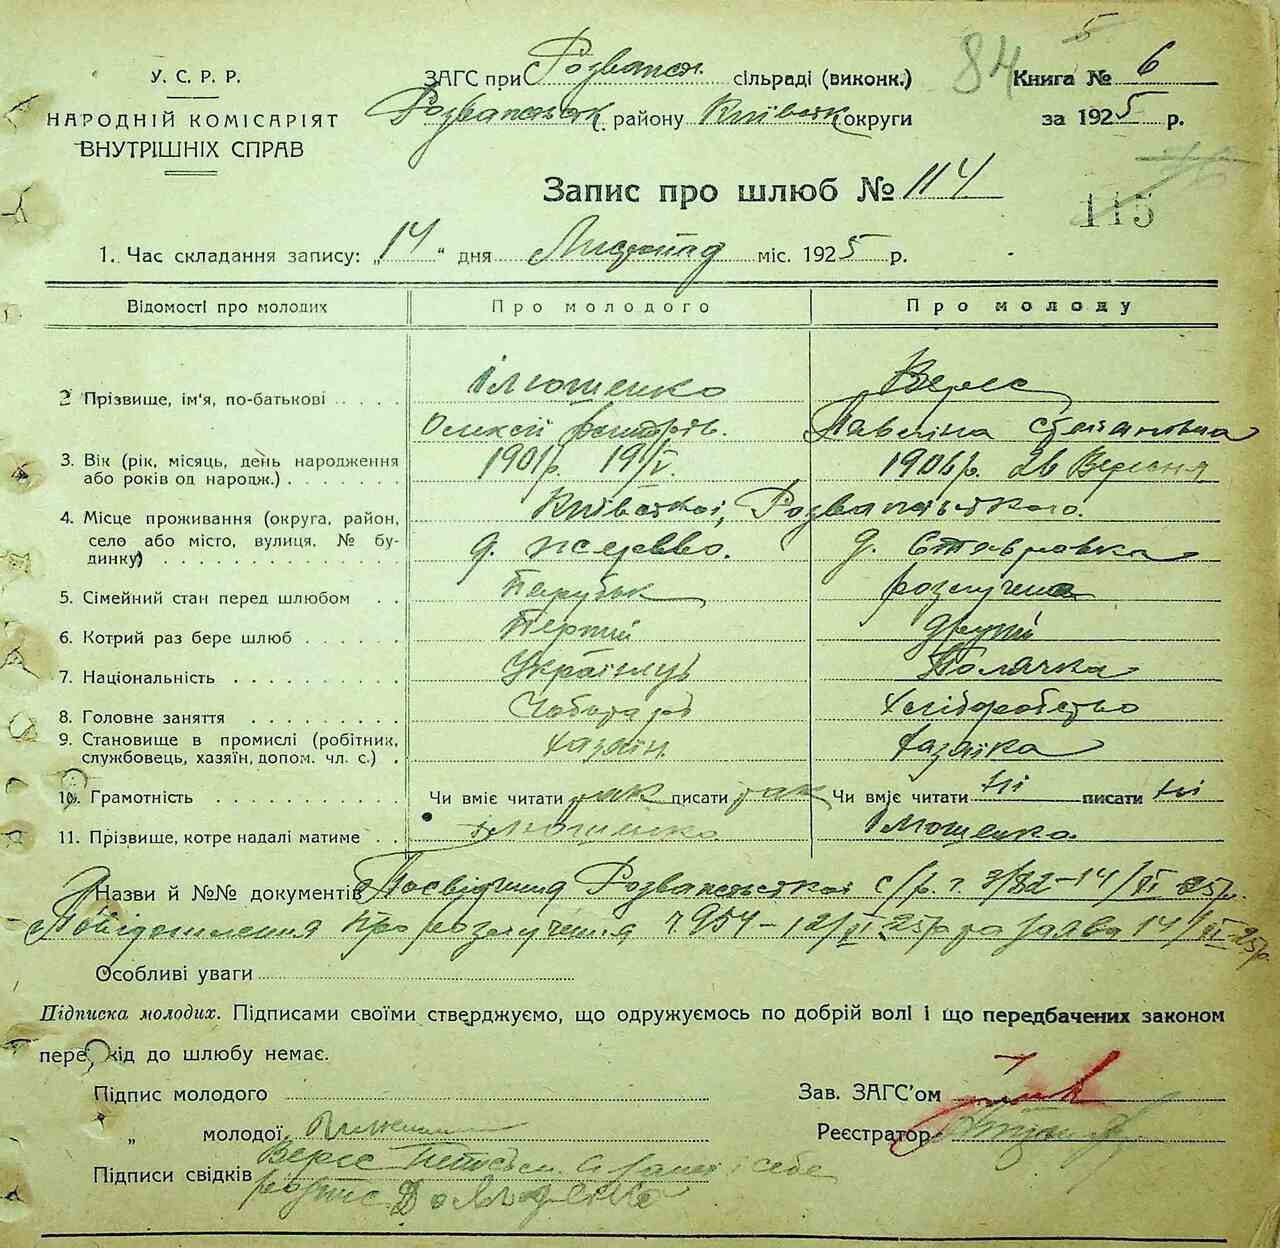 84 5
У.С.Р.Р. ЗАГС при Розважев. сільраді (виконк.) Книга № 6
НАРОДНІЙ КОМІСАРІЯТ Розважевськ. району Київськ округи за 1925 р.
ВНУТРІШНІХ СПРАВ
Запис про шлюб № 114
115
1. Час складання запису: „14“ дня Листопад міс. 1925 р.
Відомості про молодих Про молодого Про молоду
2 Прізвище, ім'я, по-батькові Ілюшенко Верес
Олексій Павліна Степановна
3. Вік (рік, місяць, день народження 1901р. 19/V. 1906р. 26 Вересня
або років од народж.)
4. Місце проживання (округа, район, Київської, Розважевського.
село або місто, вулиця, № бу- д. Жерево. д. Ставровка
динку)
5. Сімейний стан перед шлюбом Парубок розлучена
6. Котрий раз бере шлюб Перший другий
7. Національність Українець Полячка
8. Головне заняття Чоботарь Хліборобство
9. Становище в промислі (робітник, хазяїн. хазяїка
службовець, хазяїн, допом. чл. с.)
10. Грамотність Чи вміє читати так писати так Чи вміє читати ні писати ні
11. Прізвище, котре надалі матиме Ілюшенко Ілюшенко.
Назви й №№ документів Посвідчення Розважевської с/р. ч 14/XI 25р.
Повідомлення про розлучення ч. 954 – 12/XI 25р та заява 14/XI 25р.
Особливі уваги
Підписка молодих. Підписами своїми стверджуємо, що одружуємось по добрій волі і що передбачених законом
перешкід до шлюбу немає.
Підпис молодого Зав. ЗАГС'ом
„ молодої Реєстратор
Підписи свідків Верес і себе